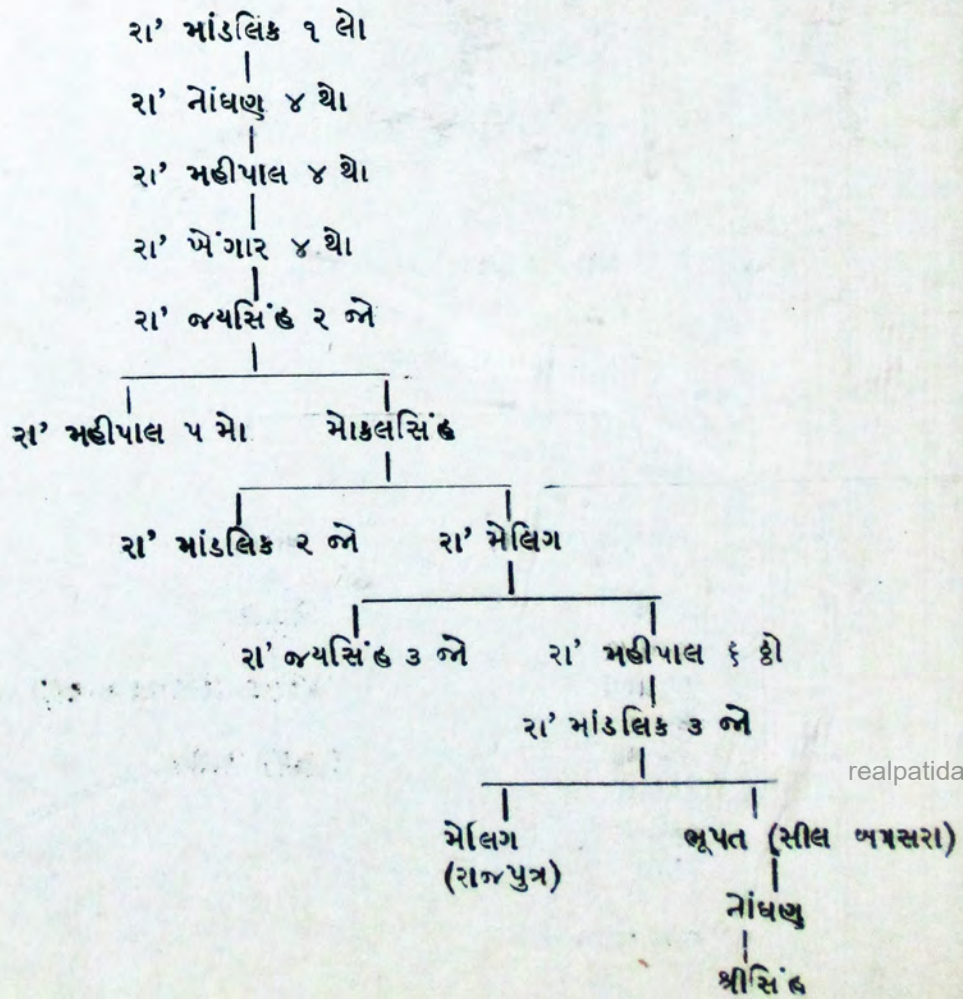 રા' માંડલિક ૧ લો
રા' નોંધણ ૪ થો
રા' મહીપાલ ૪ થો
રા' ખેંગાર ૪ થો
રા' જયસિંહ ૨ જો
રા' મહીપાલ ૫ મો મોકલસિંહ
રા' માંડલિક ૨ જો રા' મેલિગ
રા' જયસિંહ ૩ જો રા' મહીપાલ ૬ ઠ્ઠો
રા' માંડલિક ૩ જો
realpatida
મેલિગ ભૂપત (સીલ બગસરા)
(રાજપુત્ર)
નોંધણ
શ્રીસિંહ